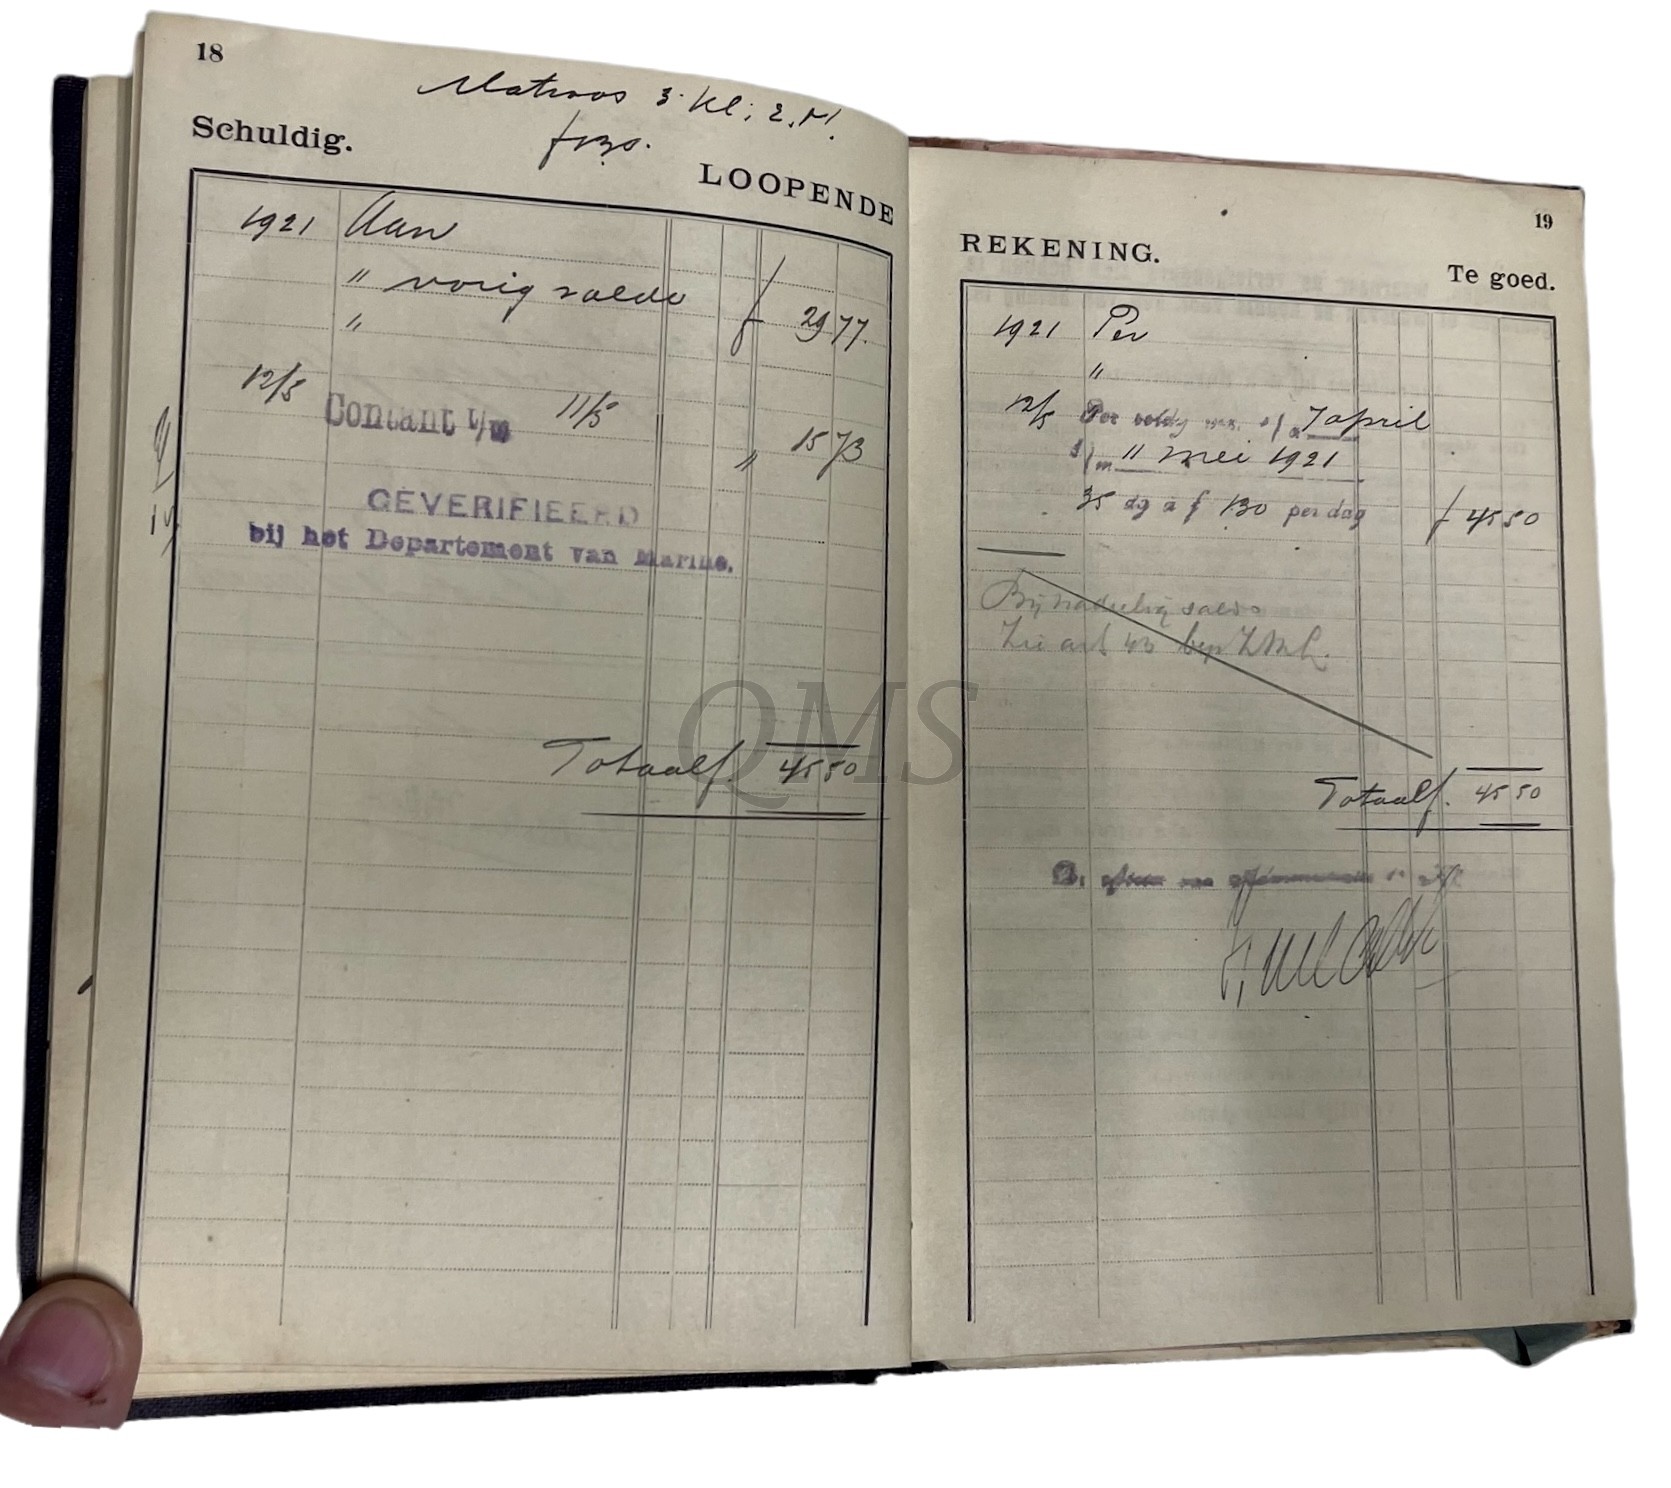 18
Matroos 3. Kl; Z.M.
f 1.30.
Schuldig.
LOOPENDE
1921 Aan
" vorig saldo f 29 77.
"
12/5 Contant t/m 11/5 " 15 73
GEVERIFIEERD
bij het Departement van Marine.
Totaal f. 45 50
19
REKENING.
Te goed.
1921 Per
"
12/5 Per 7 april
t/m 11 mei 1921
35 dg à f 130 per dag f 45 50
Bij nadeelig saldo
Zie art 43 bep
Totaal f. 45 50
QMS